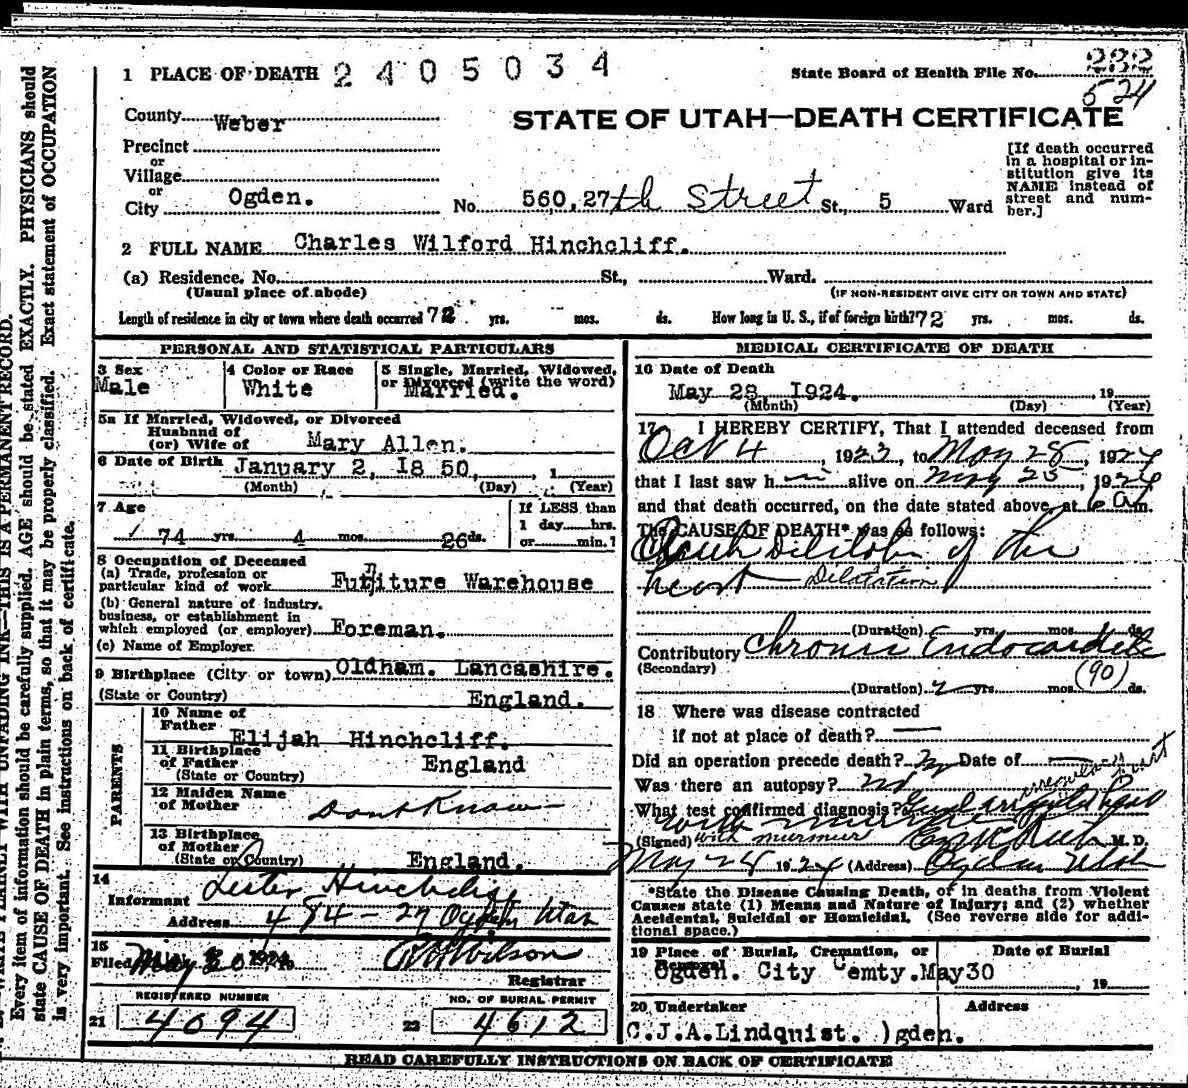 1 PLACE OF DEATH 2405034
State Board of Health File No. 232
524
County Weber
STATE OF UTAH—DEATH CERTIFICATE
Precinct
or
Village
or
City Ogden. No. 560,27th Street St., 5 Ward
[If death occurred
in a hospital or in-
stitution give its
NAME instead of
street and num-
ber.]
2 FULL NAME Charles Wilford Hinchcliff.
(a) Residence. No. St., Ward.
(Usual place of abode) (IF NON-RESIDENT GIVE CITY OR TOWN AND STATE)
Length of residence in city or town where death occurred 72 yrs. mos. ds. How long in U. S., if of foreign birth? 72 yrs. mos. ds.
PERSONAL AND STATISTICAL PARTICULARS
3 Sex 4 Color or Race 5 Single, Married, Widowed,
or Divorced (write the word)
Male White Married.
5a If Married, Widowed, or Divorced
Husband of
(or) Wife of Mary Allen.
6 Date of Birth January 2, I8 50, 1
(Month) (Day) (Year)
7 Age
74 yrs. 4 mos. 26 ds.
If LESS than
1 day hrs.
or min.?
8 Occupation of Deceased
(a) Trade, profession or
particular kind of work Furniture Warehouse
(b) General nature of industry,
business, or establishment in
which employed (or employer) Foreman.
(c) Name of Employer
9 Birthplace (City or town) Oldham. Lancashire.
(State or Country) England.
PARENTS
10 Name of
Father Elijah Hinchcliff.
11 Birthplace
of Father England
(State or Country)
12 Maiden Name
of Mother Dont Know
13 Birthplace
of Mother
(State or Country) England.
14
Informant Lester Hinchcliff
Address 484 – 27 Ogden Utah
15
Filed May 30 1924 Wilson
Registrar
REGISTERED NUMBER NO. OF BURIAL PERMIT
21 4094 22 4612
MEDICAL CERTIFICATE OF DEATH
16 Date of Death
May 28, I924. , 19
(Month) (Day) (Year)
17 I HEREBY CERTIFY, That I attended deceased from
Oct 4, 1923, to May 28, 1924
that I last saw h im alive on May 25, 1924
and that death occurred, on the date stated above, at 6 a m.
The CAUSE OF DEATH* was as follows:
of the
heart Dilatation
(Duration) yrs. mos. 1 ds.
Contributory Chronic Endocarditis
(Secondary) (90)
(Duration) 2 yrs. mos. ds.
18 Where was disease contracted
if not at place of death? —
Did an operation precede death? No Date of —
Was there an autopsy? no
What test confirmed diagnosis? irregular heart
(Signed) with murmur M. D.
May 28 1924 (Address) Ogden Utah
*State the Disease Causing Death, or in deaths from Violent
Causes state (1) Means and Nature of Injury; and (2) whether
Accidental, Suicidal or Homicidal. (See reverse side for addi-
tional space.)
19 Place of Burial, Cremation, or Date of Burial
Ogden. City Cemty. May30 , 19
20 Undertaker Address
C.J.A.Lindquist. Ogden.
READ CAREFULLY INSTRUCTIONS ON BACK OF CERTIFICATE
WRITE PLAINLY WITH UNFADING INK—THIS IS A PERMANENT RECORD.
Every item of information should be carefully supplied. AGE should be stated EXACTLY. PHYSICIANS should
state CAUSE OF DEATH in plain terms, so that it may be properly classified. Exact statement of OCCUPATION
is very important. See instructions on back of certificate.